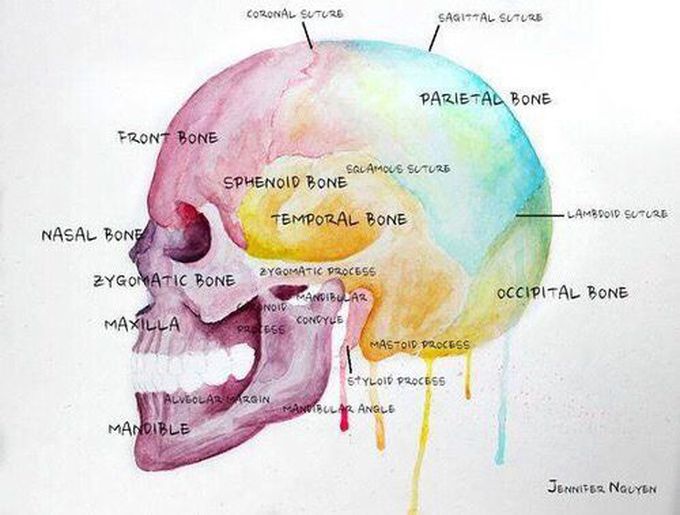 CORONAL SUTURE
SAGITTAL SUTURE
PARIETAL BONE
FRONT BONE
SQUAMOUS SUTURE
SPHENOID BONE
TEMPORAL BONE
LAMBDOID SUTURE
NASAL BONE
ZYGOMATIC PROCESS
ZYGOMATIC BONE
OCCIPITAL BONE
MANDIBULAR
CONDYLE
CORONOID
PROCESS
MAXILLA
MASTOID PROCESS
STYLOID PROCESS
ALVEOLAR MARGIN
MANDIBULAR ANGLE
MANDIBLE
JENNIFER NGUYEN